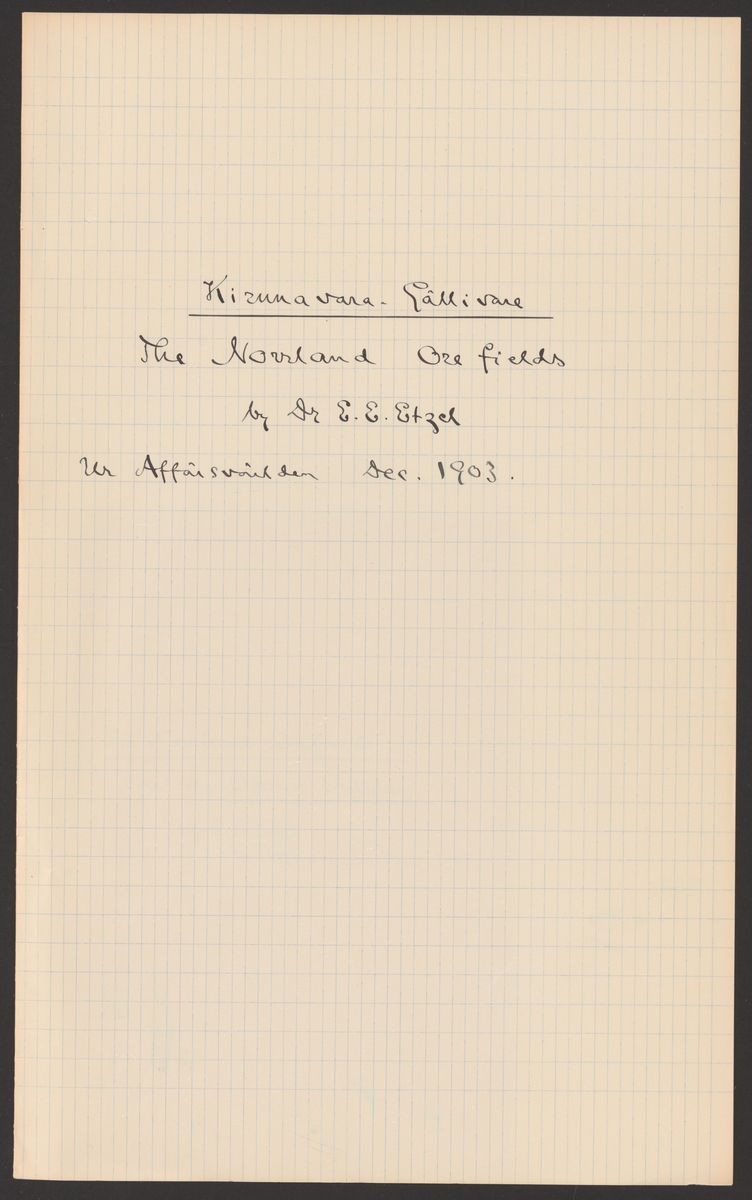 Kirunavara - Gällivare
The Norrland Ore fields
by Dr E. E. Etzel
Ur Affärsvärlden Dec. 1903.